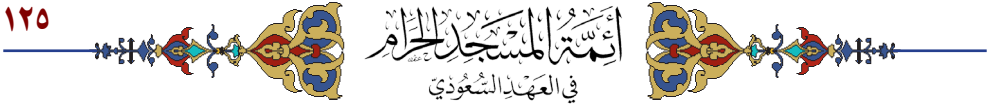 ١٢٥
أَئِمَّةُ المَسْجِدِ الحَرَامِ
فِي العَهْدِ السُّعُودِيّ